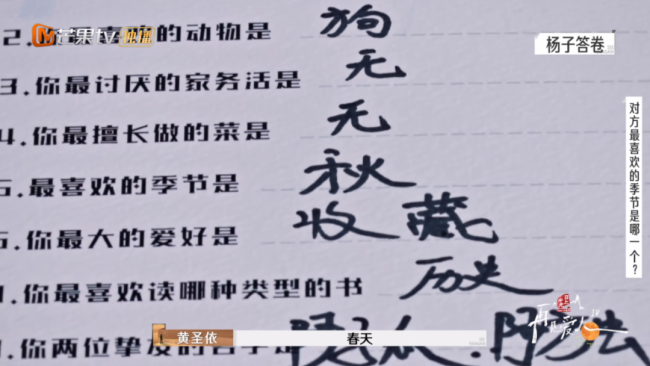 芒果TV 独播
2. 的动物是 狗
杨子答卷
3.你最讨厌的家务活是 无
4.你最擅长做的菜是 无
5.最喜欢的季节是 秋
6.你最大的爱好是 收藏
你最喜欢读哪种类型的书 历史
你两位挚友的名字是
对方最喜欢的季节是哪一个?
黄圣依 春天